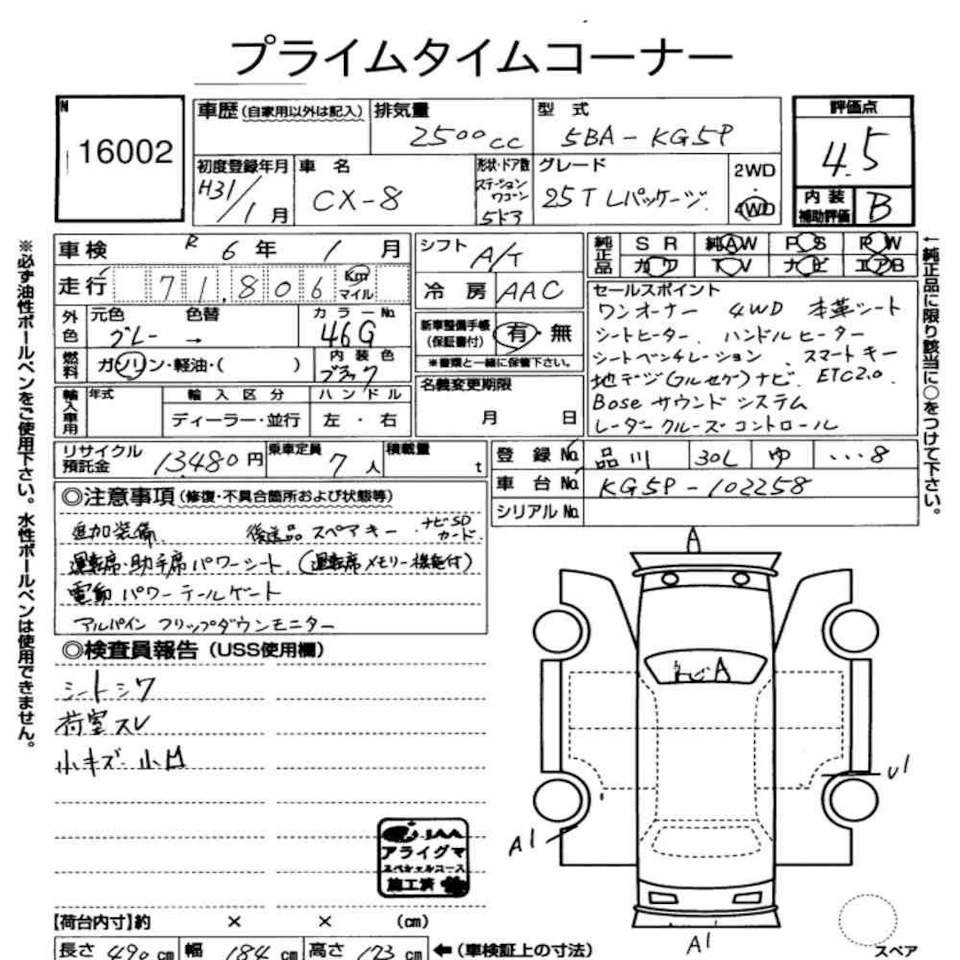 プライムタイムコーナー
N
16002
車歴(自家用以外は記入)
排気量
2500cc
型 式
5BA-KG5P
評価点
4.5
初度登録年月
H31/1月
車 名
CX-8
形状・ドア数
ステーション
ワゴン
5ドア
グレード
25T Lパッケージ
2WD
・
4WD
内装
補助評価
B
車検
R6年 1月
シフト
A/T
純正品
SR
純AW
PS
PW
カワ
TV
ナビ
エアB
走行
71,806
Km
マイル
冷房
AAC
外色
元色
グレー
色替
→
カラーNo.
46G
燃料
ガソリン・軽油・( )
内装色
ブラック
新車整備手帳
(保証書付)
有・無
※書類と一緒に保管下さい。
セールスポイント
ワンオーナー 4WD 本革シート
シートヒーター ハンドルヒーター
シートベンチレーション スマートキー
地デジ(フルセグ)ナビ ETC2.0
Bose サウンドシステム
レーダークルーズコントロール
輸入車用
年式
輸入区分
ディーラー・並行
ハンドル
左・右
名義変更期限
月 日
リサイクル
預託金
13480円
乗車定員
7人
積載量
t
登録No.
品川
30L
ゆ
…8
車台No.
KG5P-102258
シリアルNo.
◎注意事項(修復・不具合箇所および状態等)
追加装備 後送品 スペアキー・ナビSDカード
運転席・助手席パワーシート(運転席メモリー機能付)
電動パワーテールゲート
アルパイン フリップダウンモニター
◎検査員報告(USS使用欄)
シートシワ
荷室スレ
小キズ 小凹
JAA
アライグマ
スペシャルコース
施工済
A
トビA
U1
A1
A1
スペア
【荷台内寸】約 × × (cm)
長さ 490cm
幅 184cm
高さ 173cm
←(車検証上の寸法)
※必ず油性ボールペンをご使用下さい。水性ボールペンは使用できません。
←純正品に限り該当に○をつけて下さい。